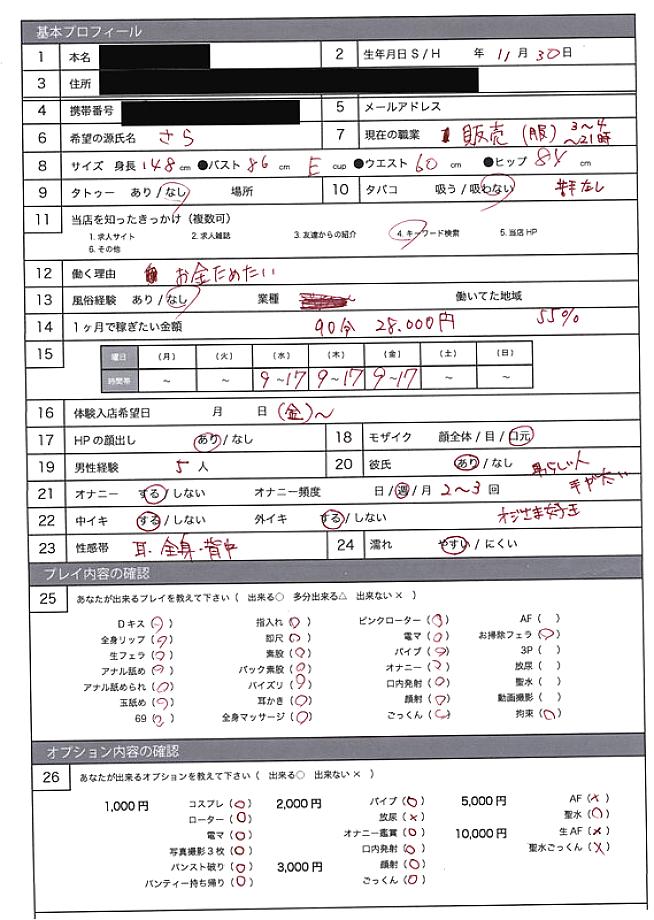 基本プロフィール
1 本名 2 生年月日 S / H 年 11 月 30 日
3 住所
4 携帯番号 5 メールアドレス
6 希望の源氏名 さら 7 現在の職業 販売 (服) 3〜4 〜21時
8 サイズ 身長 148 cm ●バスト 86 cm E cup ●ウエスト 60 cm ●ヒップ 84 cm
9 タトゥー あり / なし 場所 10 タバコ 吸う / 吸わない
11 当店を知ったきっかけ（複数可）
1. 求人サイト 2. 求人雑誌 3. 友達からの紹介 4. キーワード検索 5. 当店 HP
6. その他
12 働く理由 お金ためたい
13 風俗経験 あり / なし 業種 働いてた地域
14 1ヶ月で稼ぎたい金額 90分 28.000円 55%
15 曜日 （月） （火） （水） （木） （金） （土） （日）
時間帯 ～ ～ 9〜17 9〜17 9〜17 ～ ～
16 体験入店希望日 月 日 (金)〜
17 HP の顔出し あり / なし 18 モザイク 顔全体 / 目 / 口元
19 男性経験 5 人 20 彼氏 あり / なし
21 オナニー する / しない オナニー頻度 日 / 週 / 月 2〜3 回
22 中イキ する / しない 外イキ する / しない
23 性感帯 耳・全身・背中 24 濡れ やすい / にくい
プレイ内容の確認
25 あなたが出来るプレイを教えて下さい（ 出来る○ 多分出来る△ 出来ない× ）
Dキス (○) 指入れ (○) ピンクローター (○) AF ( )
全身リップ (○) 即尺 (○) 電マ (○) お掃除フェラ (○)
生フェラ (○) 素股 (○) バイブ (○) 3P ( )
アナル舐め (○) バック素股 (○) オナニー (○) 放尿 ( )
アナル舐められ (○) パイズリ (○) 口内発射 (○) 聖水 ( )
玉舐め (○) 耳かき (○) 顔射 (○) 動画撮影 ( )
69 (○) 全身マッサージ (○) ごっくん (○) 拘束 (○)
オプション内容の確認
26 あなたが出来るオプションを教えて下さい（ 出来る○ 出来ない× ）
1,000円 コスプレ (○) 2,000円 バイブ (○) 5,000円 AF (×)
ローター (○) 放尿 (×) 聖水 (○)
電マ (○) オナニー鑑賞 (○) 10,000円 生AF (×)
写真撮影3枚 (○) 口内発射 (○) 聖水ごっくん (×)
パンスト破り (○) 3,000円 顔射 (○)
パンティー持ち帰り (○) ごっくん (○)